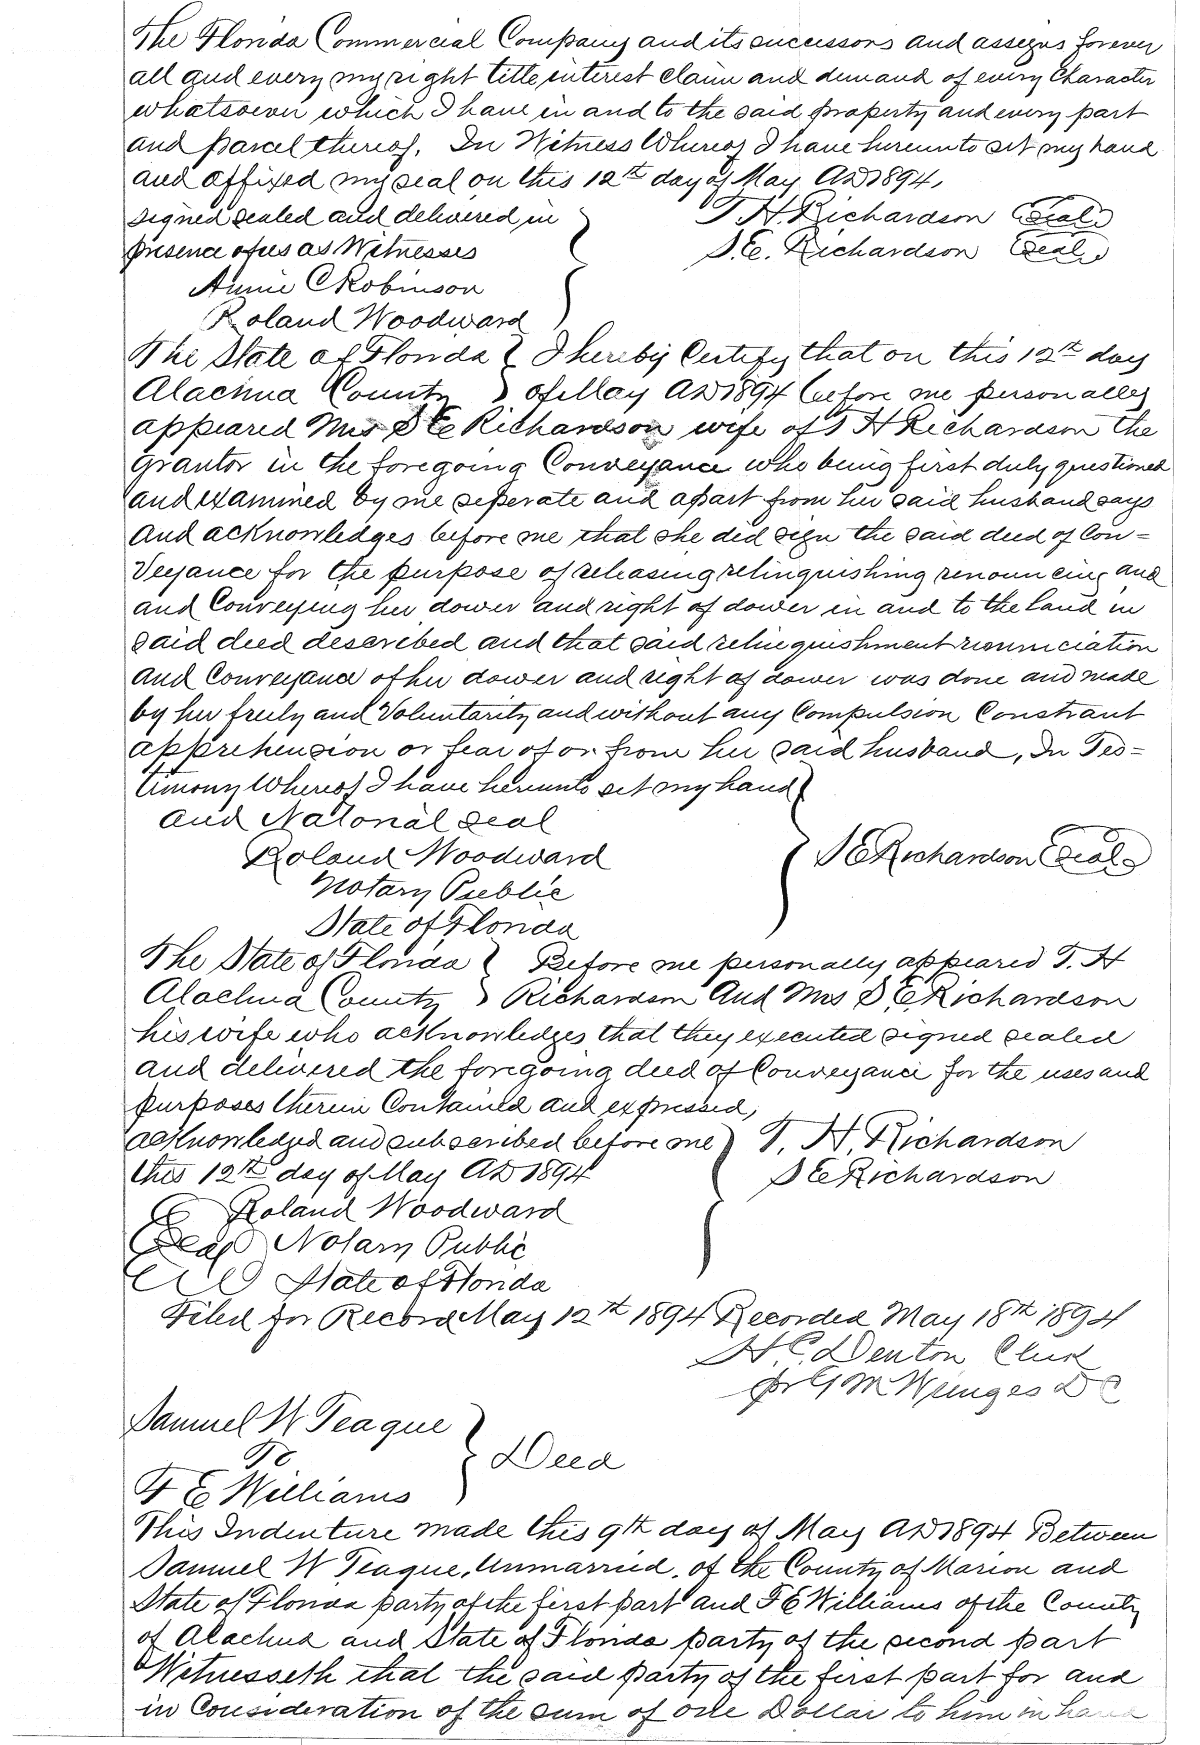 The Florida Commercial Company and its successors and assigns forever
all and every my right title, interest claim and demand of every Character
whatsoever which I have in and to the said property and every part
and parcel thereof. In Witness Whereof I have hereunto set my hand
and affixed my seal on this 12th day of May AD 1894.
signed sealed and delivered in } T. H. Richardson (Seal)
presence of us as Witnesses S. E. Richardson (Seal)
Annie C Robinson
Roland Woodward
The State of Florida } I hereby Certify that on this 12th day
Alachua County } of May AD 1894 before me personally
appeared Mrs S E Richardson wife of T H Richardson the
grantor in the foregoing Conveyance who being first duly questioned
and examined by me seperate and apart from her said husband says
and acknowledges before me that she did sign the said deed of Con=
Veyance for the purpose of releasing relinquishing renouncing and
and Conveying her dower and right of dower in and to the land in
said deed described and that said relinquishment renunciation
and Conveyance of her dower and right of dower was done and made
by her freely and Voluntarity and without any Compulsion Constrant
apprehension or fear of or from her said husband, In Tes=
timony Whereof I have hereunto set my hand }
and Notorial seal
Roland Woodward S E Richardson (Seal)
Notary Public
State of Florida
The State of Florida } Before me personally appeared T. H
Alachua County } Richardson And Mrs S. E. Richardson
his wife who acknowledges that they executed signed sealed
and delivered the foregoing deed of Conveyance for the uses and
purposes therein Contained and expressed,
acknowledged and subscribed before me } T. H. Richardson
this 12th day of May AD 1894 S E Richardson
Roland Woodward
(Seal) Notary Public
State of Florida
Filed for Record May 12th 1894 Recorded May 18th 1894
H. C. Denton Clerk
pr G M Wynges D C
Samuel W Teague
To } Deed
F E Williams
This Indenture made this 9th day of May AD 1894 Between
Samuel W Teague, Unmarried, of the County of Marion and
State of Florida party of the first part and F E Williams of the County
of Alachua and State of Florida party of the second part
Witnesseth that the said party of the first part for and
in Consideration of the sum of one Dollar to him in hand